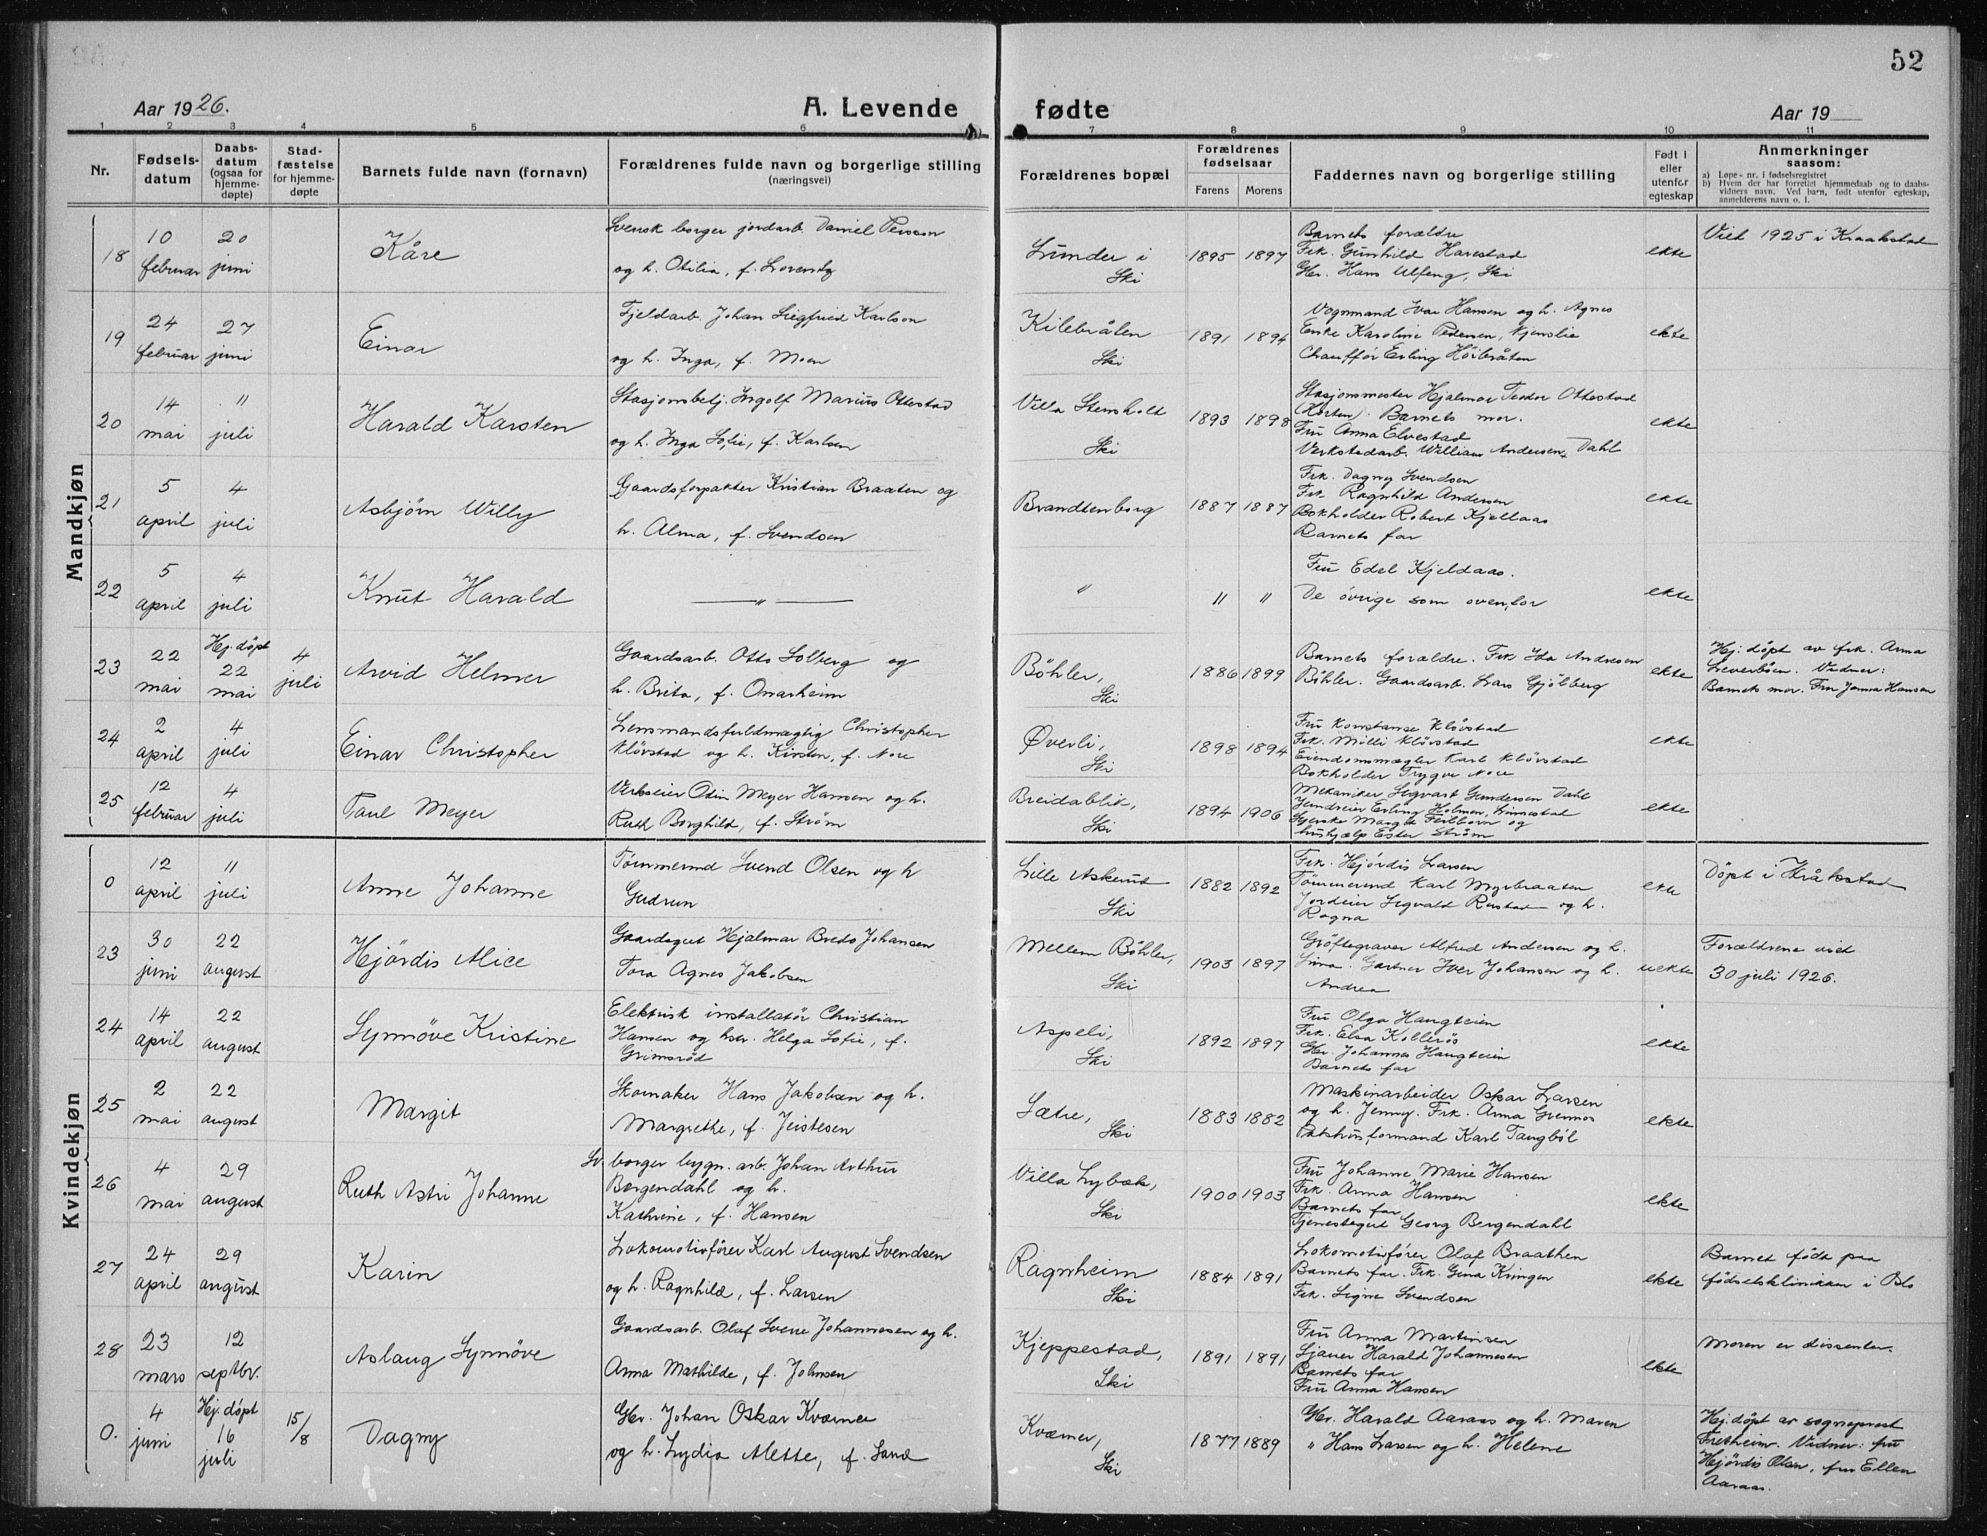 52
Aar 1926.
A. Levende fødte
Aar 19
1 2 3 4 5 6 7 8 9 10 11
Nr.
Fødselsdatum
Daabsdatum (ogsaa for hjemmedøpte)
Stadfæstelse for hjemmedøpte
Barnets fulde navn (fornavn)
Forældrenes fulde navn og borgerlige stilling
(næringsvei)
Forældrenes bopæl
Forældrenes fødselsaar
Farens Morens
Faddernes navn og borgerlige stilling
Født i eller utenfor egteskap
Anmerkninger
saasom:
a) Løpe-nr. i fødselsregistret
b) Hvem der har forrettet hjemmedaab og to daabsvidners navn. Ved barn, født utenfor egteskap, anmelderens navn o. l.
Mandkjøn
18
10 februar
20 juni
Kåre
Svensk borger jordarb. Daniel Persson
og h. Otilia, f. Lorentz
Lunder i
Ski
1895 1897
Barnets forældre
Frk. Gunhild Harestad
Hr. Hans Ulfeng, Ski
ekte
Viet 1925 i Kraakstad
19
24 februar
27 juni
Einar
Fjeldarb. Johan Siegfried Karlson
og h. Inga, f. Moen
Kilebråten
Ski
1891 1894
Vognmand Ivar Hansen og h. Agnes
Enke Karoline Pedersen, Kjenslie
Chauffør Erling Hörbråten
ekte
20
14 mai
11 juli
Harald Karsten
Stasjonsbetj. Ingolf Marius Ottestad
og h. Inga Sofie, f. Karlsen
Villa Stensholt
Ski
1893 1898
Stasjonsmester Hjalmar Teodor Ottestad
(Horten). Barnets mor.
Fru Anna Elvestad
Verkstadarb. William Andersen, Dahl
ekte
21
5 april
4 juli
Asbjörn Willy
Gaardsforpakter Kristian Braaten og
h. Alma, f. Svendsen
Brandtenborg
1887 1887
Frk. Dagny Svendsen
Frk. Ragnhild Andersen
Bokholder Robert Kjellaas
Barnets far
ekte
22
5 april
4 juli
Knut Harald
— " —
"
" "
Fru Edel Kjeldaas.
De övrige som ovenfor
ekte
23
22 mai
Hj. döpt 22 mai
4 juli
Arvid Helmer
Gaardsarb. Otto Solberg og
h. Brita, f. Omarheim
Böhler,
Ski
1886 1899
Barnets forældre. Frk Ida Andresen
Böhler. Gaardsarb. Lars Gjölberg
ekte
Hj. döpt av frk. Anna
Leverböen. Vidner:
Barnets mor. Fru Jenna Hansen
24
2 april
4 juli
Einar Christopher
Lensmandsfuldmægtig Christopher
Klövstad og h. Kirsten, f. Nore
Øverli,
Ski
1898 1894
Fru Konstanse Klövstad
Frk. Milli Klövstad
Eiendomsmægler Karl Klövstad
Bokholder Trygve Nore
ekte
25
12 februar
4 juli
Paul Meyer
Verkseier Odin Meyer Hansen og h.
Ruth Borghild, f. Ström
Breidablik,
Ski
1894 1906
Mekaniker Sigvart Gundersen Dahl
Jundreier Erling Holmsen, Linnestad
Syerske Margit Feilborn og
hushjælp Ester Ström
ekte
Kvindekjøn
0
12 april
11 juli
Anne Johanne
Tömmermd Svend Olsen og h
Gudrun
Lille Askerud
Ski
1882 1892
Frk. Hjördis Larsen
Tömmermd Karl Myrbraaten
Jordeier Sigvald Rustad og h.
Ragna
ekte
Döpt i Kråkstad
23
30 juni
22 august
Hjördis Alice
Gaardsgut Hjalmar Bredo Johansen
Tora Agnes Jakobsen
Mellem Böhler,
Ski
1903 1897
Gröftegraver Alfred Andersen og h.
Lina. Gartner Iver Johansen og h.
Andrea
uekte
Forældrene viet
30 juli 1926.
24
14 april
22 august
Synnöve Kristine
Elektrisk installatör Christian
Hansen og hstr. Helga Sofie, f.
Grimsröd
Aspeli,
Ski
1892 1897
Fru Olga Haugteien
Frk. Elsa Kollerös
Hr. Johannes Haugteien
Barnets far
ekte
25
2 mai
22 august
Margit
Skomaker Hans Jakobsen og h.
Margrethe, f. Jeistesen
Sætre,
Ski
1883 1882
Maskinarbeider Oskar Larsen
og h. Jenny. Frk. Anna Grennes
Pukhusformand Karl Tangböl
ekte
26
4 mai
29 august
Ruth Astri Johanne
Sv. borger bygn. arb. Johan Arthur
Borgendahl og h.
Kathrine, f. Hansen
Villa Lybæk,
Ski
1900 1903
Fru Johanne Marie Hansen
Frk. Anna Hansen
Barnets far
Tjenestegut Georg Bergendahl
ekte
27
24 april
29 august
Karin
Lokomotivfører Karl August Svendsen
og h. Ragnhild, f. Larsen
Ragnheim
Ski
1884 1891
Lokomotivfører Olaf Braathen
Barnets far. Frk. Gina Kringen
Frk. Signe Svendsen
ekte
Barnet födt paa
födselsklinikken i Oslo
28
23 mars
12 septbr.
Aslaug Synnöve
Gaardsarb. Olaf Sverre Johannesen og h.
Anna Mathilde, f. Johnsen
Kjeppestad,
Ski
1891 1891
Fru Anna Martinsen
Sjauer Harald Johannesen
Barnets far
Fru Anna Hansen
ekte
Moren er dissenter.
0.
4 juni
Hj. döpt 16 juli
15/8
Dagny
Gbr. Johan Oskar Kværner
og h. Lydia Alette, f. Sand
Kværner,
Ski
1877 1889
Gbr. Harald Aaraas og h. Maren
" Hans Larsen og h. Helene
Hj. döpt av sogneprest
Fretheim. Vidner: fru
Hjördis Olsen, fru Ellen
Aaraas.